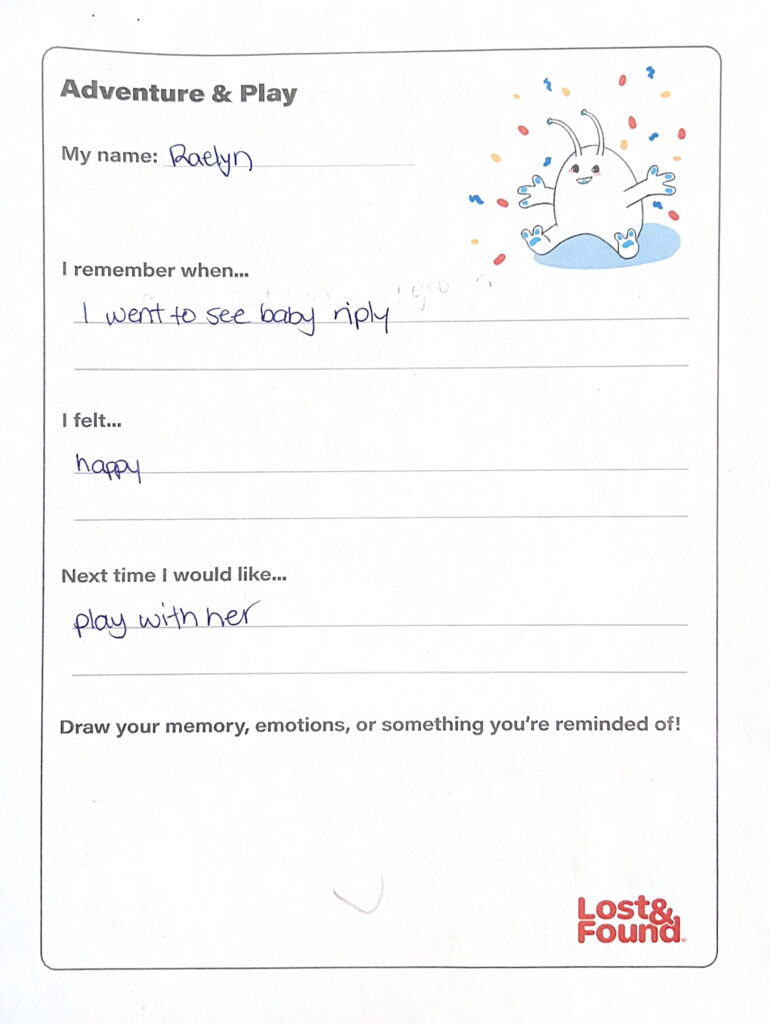 Adventure & Play
My name: Raelyn
I remember when...
I went to see baby riply
I felt...
happy
Next time I would like...
play with her
Draw your memory, emotions, or something you're reminded of!
Lost&
Found